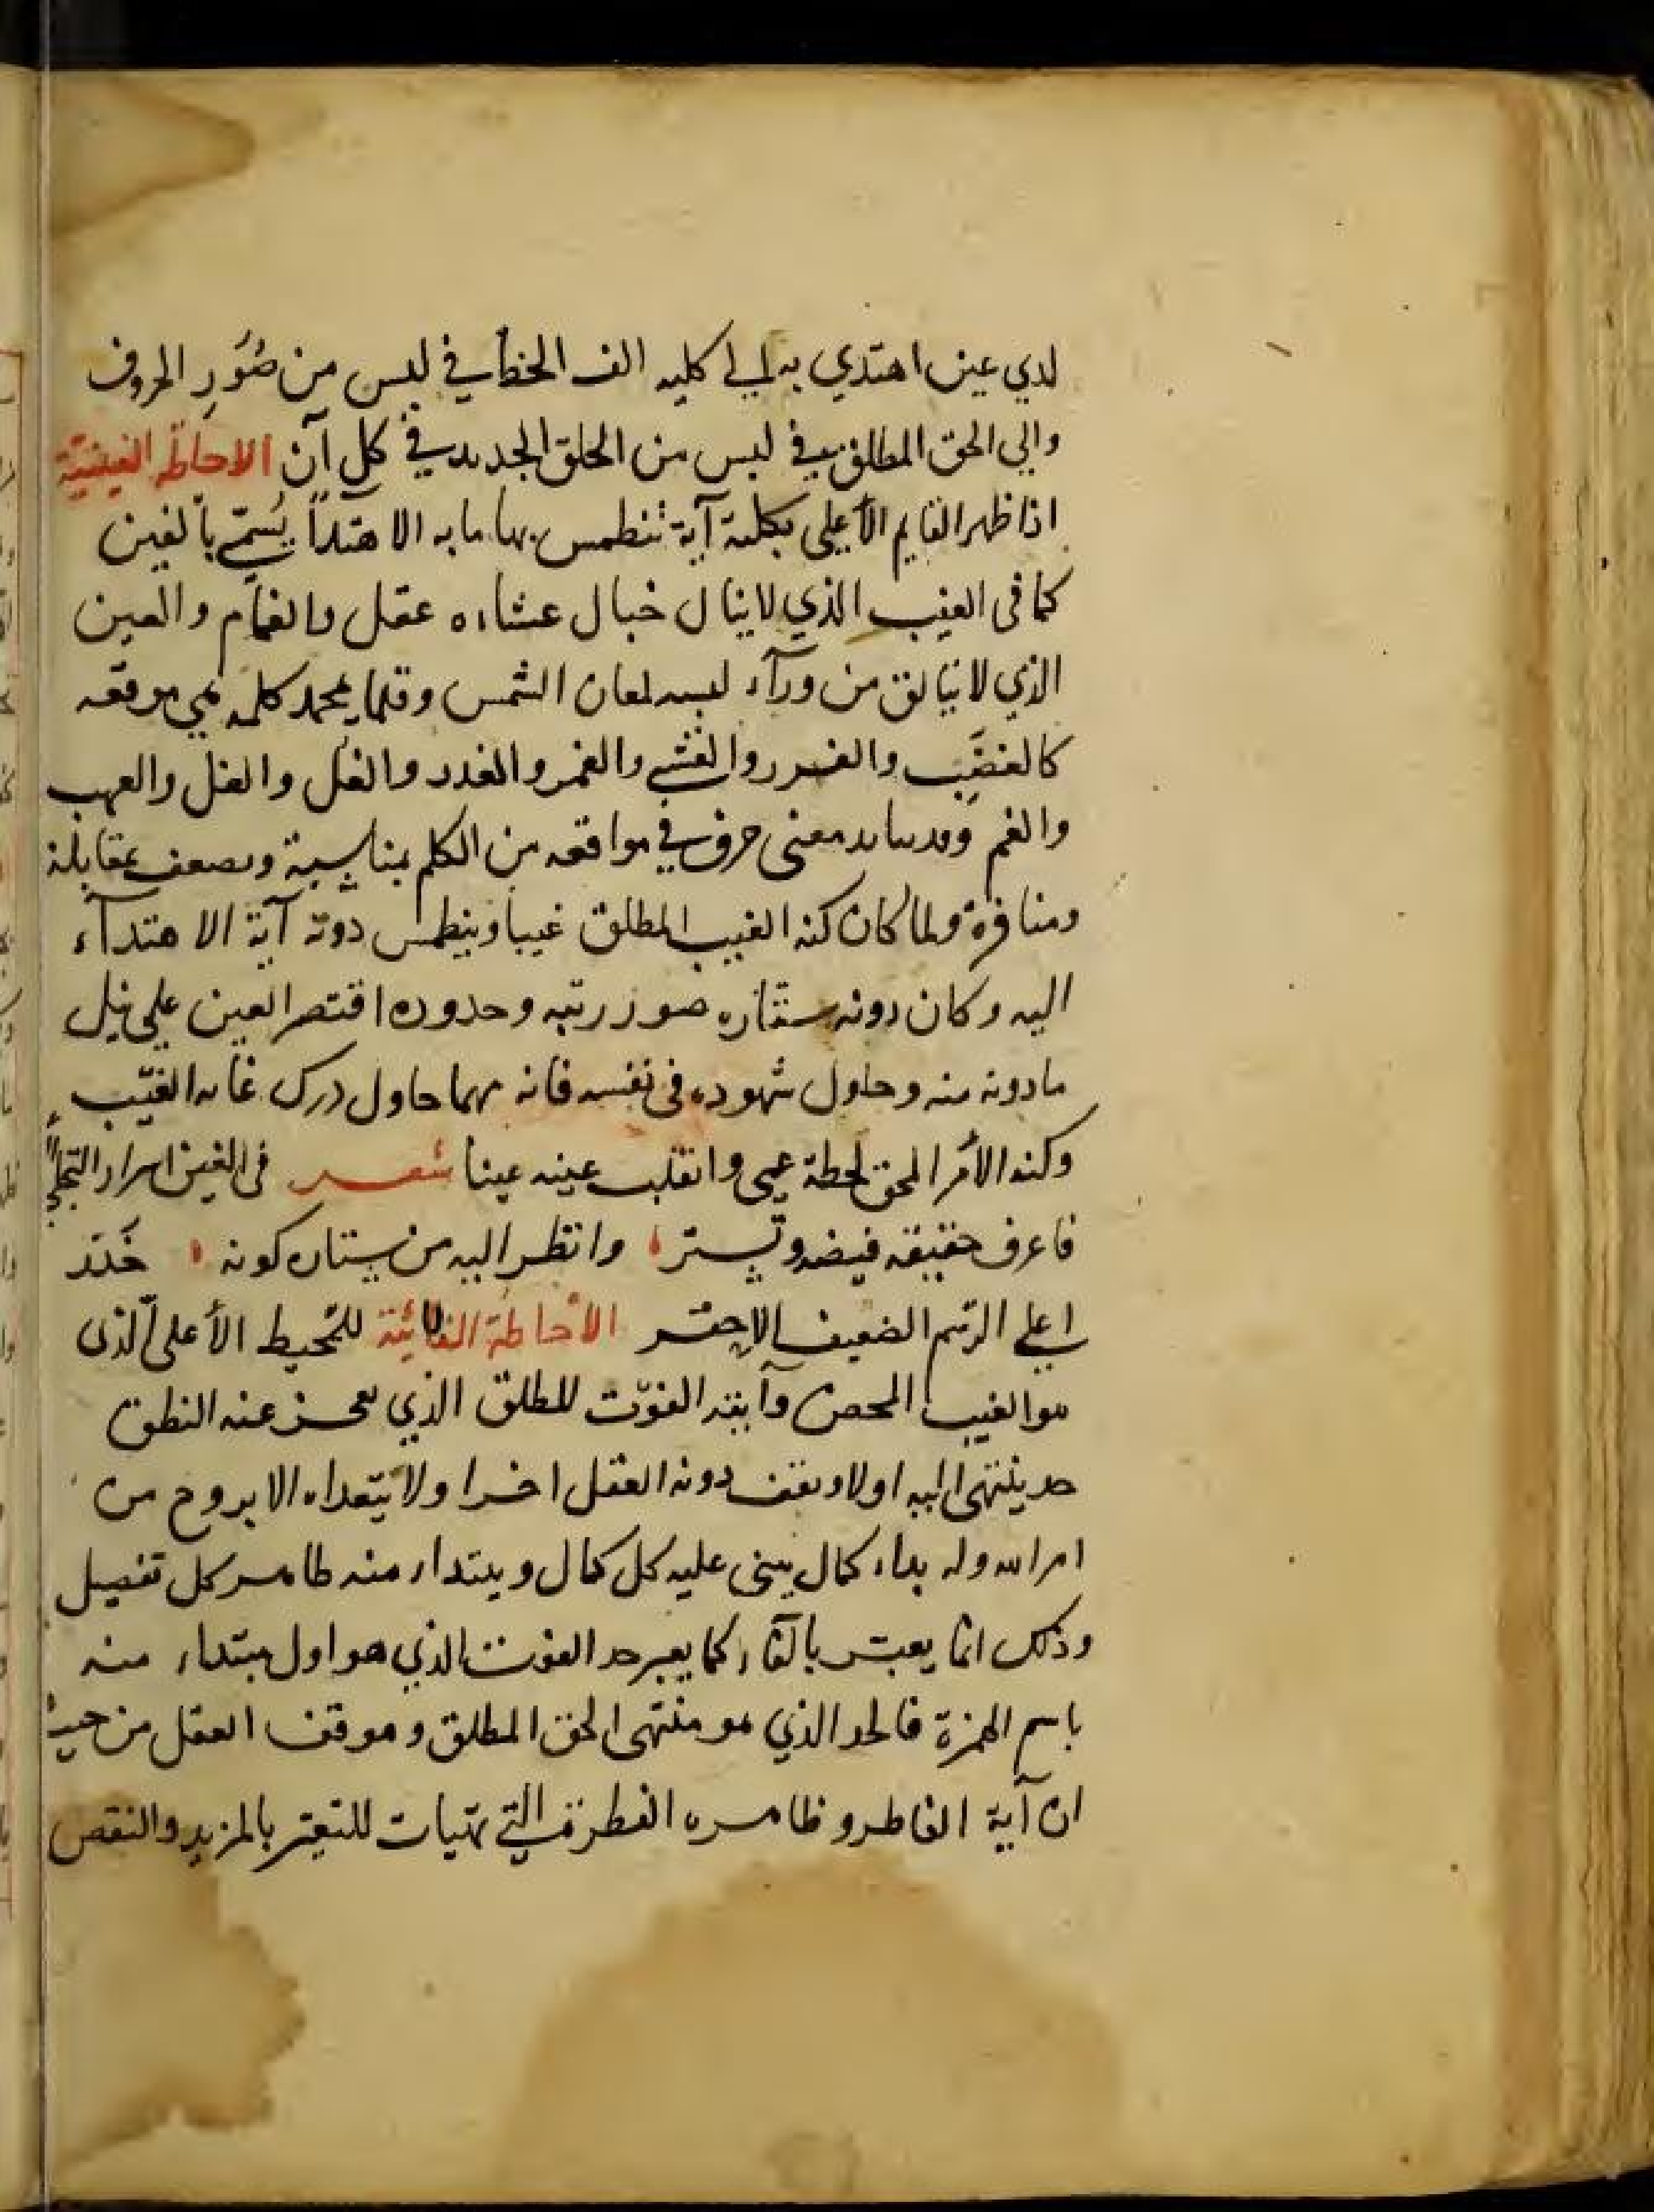 لدي عين اهتدي به الى كليه الف الخطأ في لبس من صُوَرِ الحروف
والي الحق المطلق في لبس من الخلق الجديد في كل آن الاحاطة الغينيّة
اذا ظهر القايم الأعلى بكلمة آية تنطمس بها ما به الاهتدآ يُسمّي بالغين
كما فى الغيب الذي لا ينال خبال عشاه عقل والغمام والغين
الذي لا يتالق من ورآء لبسه لمعان الشمس وقلما يحمد كلمه هي موقعه
كالغضب والغرر والغشي والغمر والغدر والغل والغل والغهب
والغم وقد معنى حرف في مواقعه من الكلم بمناسبة ويضعف بمقابلة
ومنافرة ولما كان كنه الغيب المطلق غيبا وينطمس دونه آية الاهتدآء
اليه وكان دونه ستاره صور رتبه وحدوده اقتصر العين علي نيل
ما دونه منه وحاول شهوده في نفسه فانه مهما حاول درك غايه الغيب
وكنه الأمر المحق لحظة عمى وانقلب عينه غينا شعر فى الغين اسرار التجلّي
فاعرف حقيقه فيضه وتستر وانظر اليه من ستاره كونه خَدَد
اعلي الرسم الضعيف الاحقر الأحاطة الفائيّة للمحيط الأعلى الذى
هو الغيب المحض وآيته الفوت المطلق الذي يعجز عنه النطق
حد ينتهى اليه اولا ويقف دونه العقل اخرا ولا يتعداه الا بروح من
امر الله وله بداء كمال يبنى عليه كل كمال ويبتداء منه ظاهر كل تفصيل
وذلك انما يعبر بالفاء كما يعبر حد الفوت الذي هو اول مبتداء منه
باسم الهمزة فالحد الذي هو منتهى الحق المطلق وموقف العقل من حيث
ان آية الفاطر وظاهره الفطرة التي تهيات للتغير بالمزيد والنقص